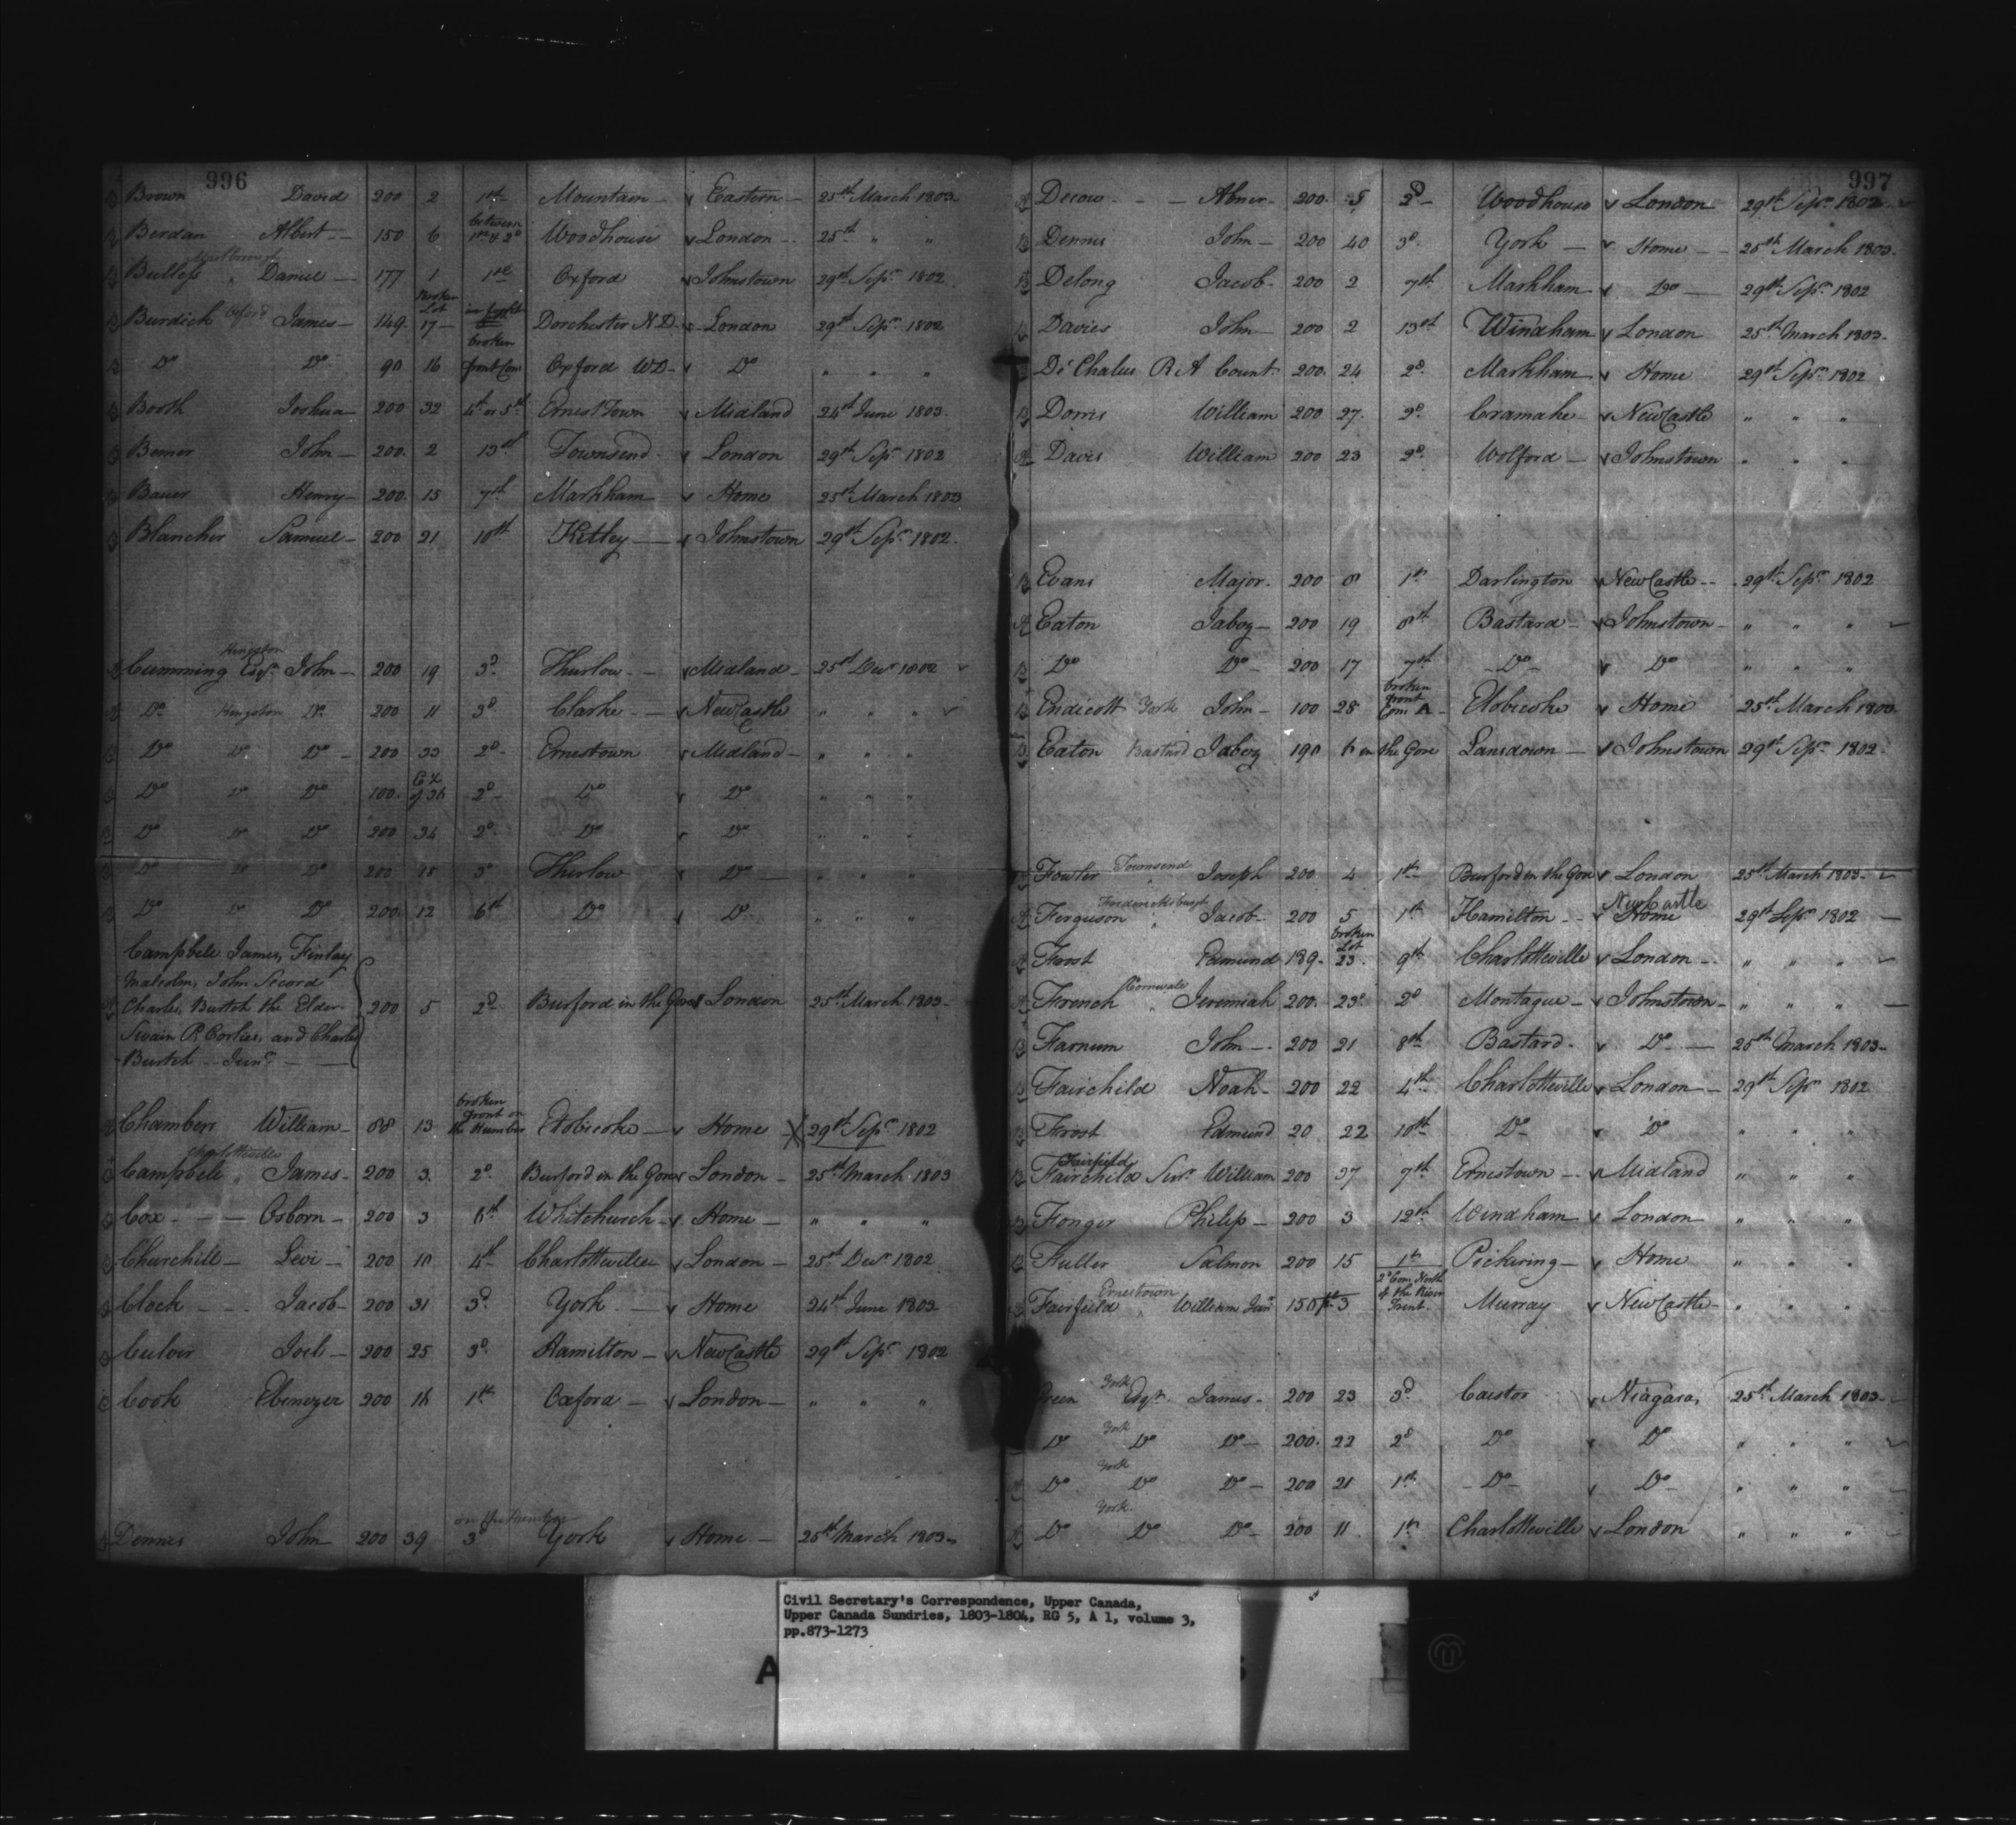 996
Brown David 200 2 1st Mountain Eastern 25th March 1803
Berdan Albert 150 6 between 1st & 2d Woodhouse London 25th " "
Marlborough
Bulless " Daniel 177 1 1st Oxford Johnstown 29th Sepr 1802
Burdick Oxford James 149 broken Lot 17 Dorchester N.D. London 29th Sepr 1802
Do Do 90 16 broken front Con Oxford WD Do " " "
Booth Joshua 200 32 4th or 5th Ernest Town Midland 24th June 1803
Bemer John 200 2 13th Townsend London 29th Sepr 1802
Bauer Henry 200 15 7th Markham Home 25th March 1803
Blancher Samuel 200 21 10th Kitley Johnstown 29th Sepr 1802
Kingston
Cumming Esqr John 200 19 3d Thurlow Midland 25th Decr 1802
Do Kingston Do 200 11 3d Clarke NewCastle " " "
Do Do Do 200 33 2d Ernestown Midland " " "
Do Do Do 100 2d Do Do " " "
Do Do Do 200 34 2d Do Do " " "
Do Do Do 200 18 3d Thurlow Do " " "
Do Do Do 200 12 6th Do Do " " "
Campbell James, Finlay
Malcolm, John Secord
Charles Burtch the Elder 200 5 2d Burford in the Gore London 25th March 1803
Swain R Corliss, and Charles
Burtch Junr
Chambers William 88 13 broken front on the Humber Etobicoke Home X 29th Sepr 1802
Charlotteville
Campbell " James 200 3 2d Burford in the Gore London 25th March 1803
Cox Osborn 200 3 6th Whitchurch Home " " "
Churchill Levi 200 10 4th Charlotteville London 25th Decr 1802
Clock Jacob 200 31 3d York Home 24th June 1803
Culver Joel 200 25 3d Hamilton NewCastle 29th Sepr 1802
Cook Ebenezer 200 16 1st Oxford London " " "
on the Humber
Dennis John 200 39 3d York Home 25th March 1803
997
Decow Abner 200 5 2d Woodhouse London 29th Sepr 1802
Dennis John 200 40 3d York Home 25th March 1803
Delong Jacob 200 2 7th Markham Do 29th Sepr 1802
Davies John 200 2 13th Windham London 25th March 1803
De Chalus R A Count 200 24 2d Markham Home 29th Sepr 1802
Dorris William 200 27 2d Cramahe NewCastle " " "
Davis William 200 23 2d Wolford Johnstown " " "
Evans Major 200 8 1st Darlington NewCastle 29th Sepr 1802
Eaton Jabez 200 19 8th Bastard Johnstown " " "
Do Do 200 17 7th Do Do " " "
Endicott York John 100 28 broken front Con A Etobicoke Home 25th March 1803
Eaton Bastard Jabez 190 6 in the Gore Lansdown Johnstown 29th Sepr 1802
Fowler Townsend Joseph 200 4 1st Burford in the Gore London 25th March 1803
Fredericksburgh NewCastle
Ferguson " Jacob 200 5 1st Hamilton Home 29th Sepr 1802
Frost Edmund 189 broken Lot 23 9th Charlotteville London " " "
Cornwale
French " Jeremiah 200 23 2d Montague Johnstown " " "
Farnum John 200 21 8th Bastard Do 25th March 1803
Fairchild Noah 200 22 4th Charlotteville London 29th Sepr 1802
Frost Edmund 20 22 10th Do Do " " "
Fairfield
Fairchild Senr William 200 37 7th Ernestown Midland " " "
Fonger Philip 200 3 12th Windham London " " "
Fuller Salmon 200 15 1st Pickering Home " " "
Ernestown
Fairfield " William Junr 150 pt 3 2d Con North of the River Trent. Murray NewCastle " " "
York
Green Esqr James 200 23 3d Caistor Niagara 25th March 1803
York
Do Do Do 200 22 2d Do Do " " "
York
Do Do Do 200 21 1st Do Do " " "
York
Do Do Do 200 11 1st Charlotteville London " " "
Civil Secretary's Correspondence, Upper Canada,
Upper Canada Sundries, 1803-1804, RG 5, A 1, volume 3,
pp.873-1273